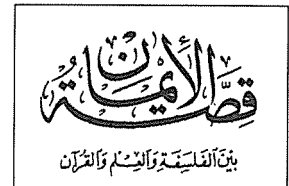 قِصَّةُ الإيمَانِ
بَيْنَ الفَلسَفَةِ وَالعِلْمِ وَالقُرآنِ